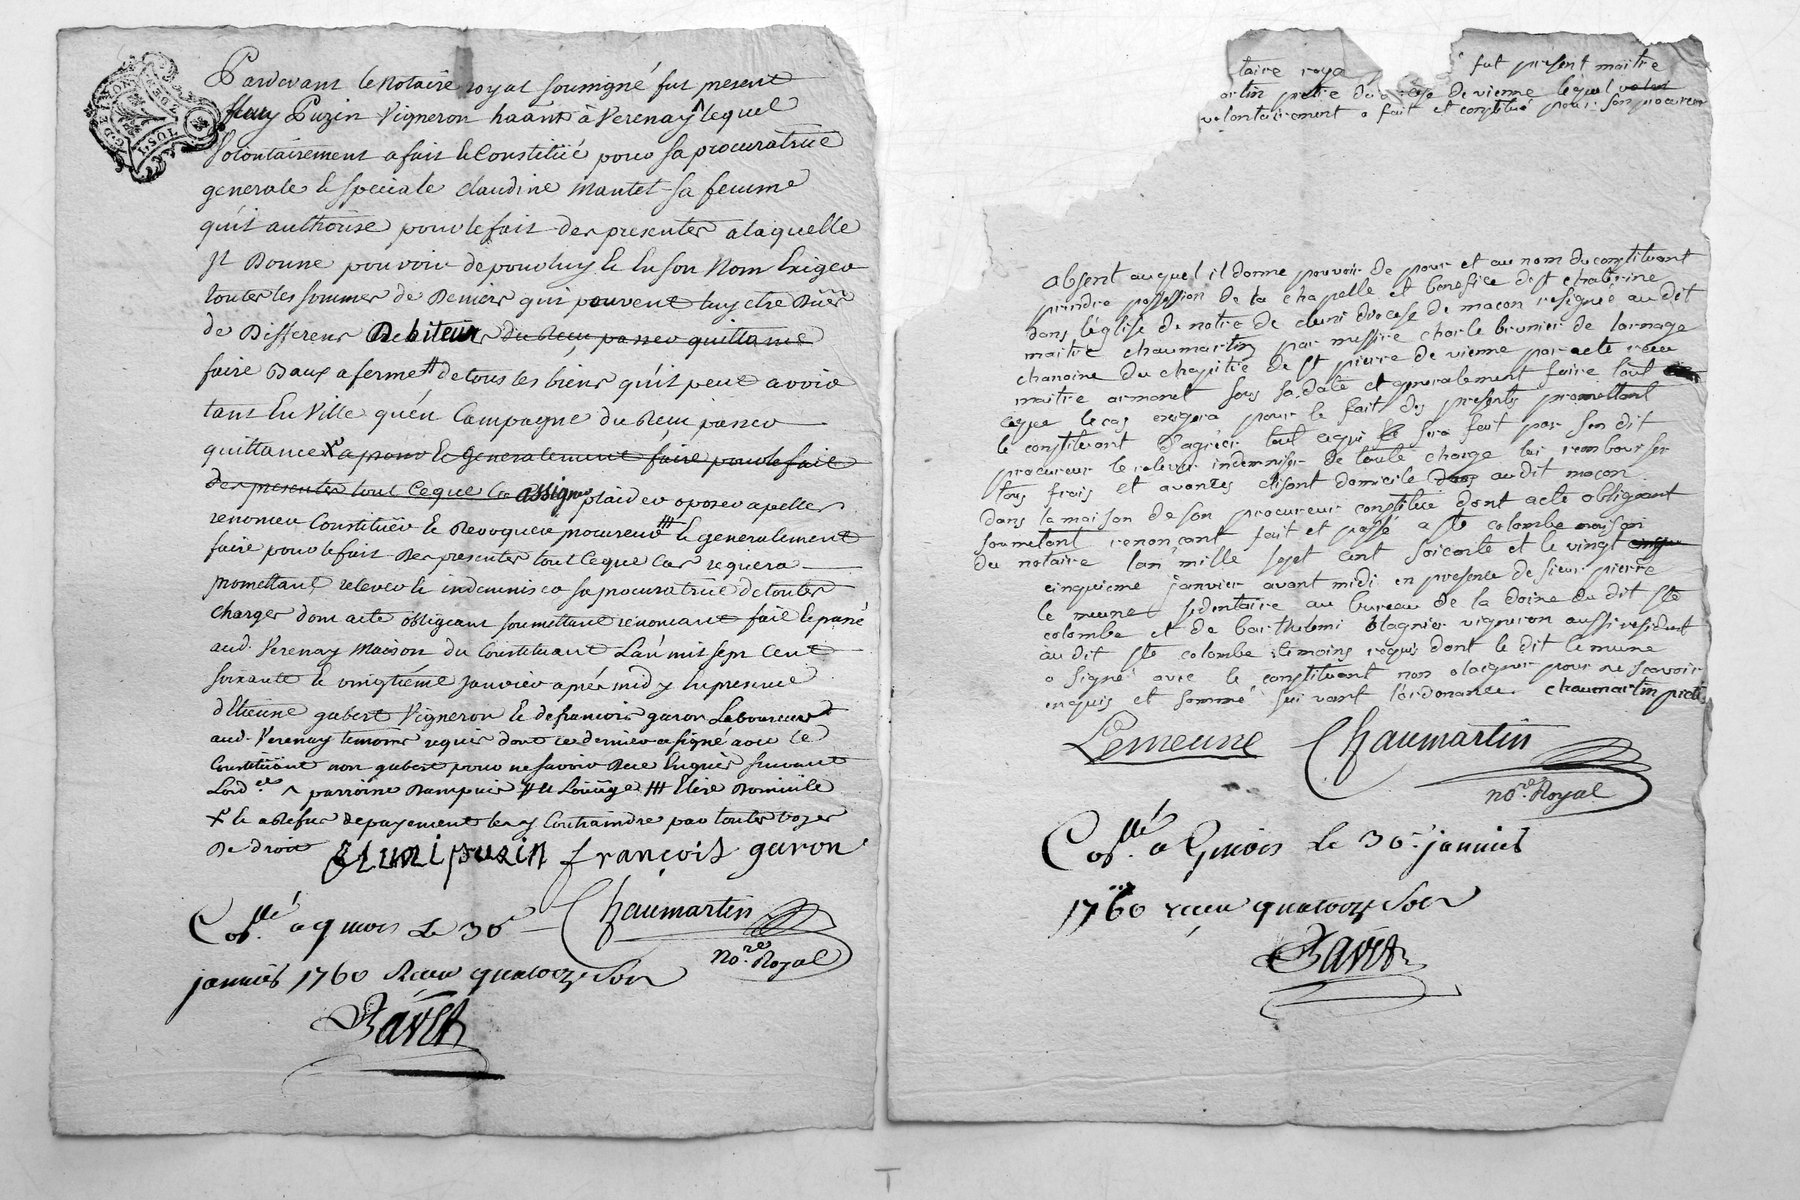 Pardevant le Notaire royal soussigné fut present
fleury Puzin Vigneron haant à Verenay ^ lequel
Volontairement a fait & Constitüé pour sa procuratrice
generale & speciale claudine Mantel sa femme
qu'il authorise pour le fait des presentes a laquelle
Il Donne pouvoir de pour luy & En son Nom Exiger
toutes les sommes de Deniers qui peuvent luy etre Dües
de Differens Debiteurs du Recu passer quittance
faire Baux a ferme # de tous les biens qu'il peut avoir
tant En Ville qu'en Campagne du Recu passer
quittance x a prouv & Generalement faire pour le fait
des presentes tout ceque les assigner plaider oposer apeller
renomer Constitüer & Revoquer procureur ### & generalement
faire pour le fait Des presentes tout ceque cas requiera
promettant relever & indemniser sa procuratrice de toutes
charges dont acte obligeant soumettant renoncant fait & passé
aud. Verenay Maison du Constituant L'an mil sept Cent
soixante & vingtiéme Janvier aprés midy En presence
d'Etienne gubert Vigneron & de francois garon Laboureur
aud. Verenay temoins requis dont ce dernier a signé avec le
Constitüant non gubert pour ne savoir Dece Enquis suivant
Lord.ce ^ parroisse Dampuis # & Loüage ### Elire Domicile
x & a Defaut de payement les y Contraindre par toutes voyes
De droit
fleuri puzin françois garon
Chaumartin
no.re Royal
Con.llé a Givors Le 30
janvier 1760 Recu quatorze sols
Bavet
taire roya fut présent maitre
artin prêtre du diocese de vienne lequel volon
volontairement a fait et constitué pour son procureur
absent auquel il donne pouvoir de pour et au nom du constituant
prindre possession de la chapelle et benefice de st chaterine
dans léglise de notre de cluni diocese de macon resignée au dit
maitre chaumartin par messire charle brunier de larnage
chanoine du chapitre de st pierre de vienne par acte recu
maitre armanet sous sa date et generalement faire tout
ceque le cas exigera pour le fait des presentes promettant
le constituant d'agréer tout cequi sera fait par son dit
procureur le relever indemniser de toute charge lui rembourser
tous frais et avances elisant domicile dans au dit macon
dans la maison de son procureur constitué dont acte obligeant
soumettant renonçant fait et passé a ste colombe maison
du notaire lan mille sept cent soicente et le vingt
cinquieme janvier avant midi en presence de sieur pierre
le meune sedentaire au bureau de la doüne du dit ste
colombe et de barthelemi blagnier vigneron aussi resident
au dit ste colombe temoins requis dont le dit lemune
a signé avec le constituant non blagnier pour ne scavoir
enquis et sommé suivant l'ordonance chaumartin prêtre
Lemeune Chaumartin
no.re Royal
Con.llé a Givors Le 30 janvier
1760 recu quatorze sols
Bavet